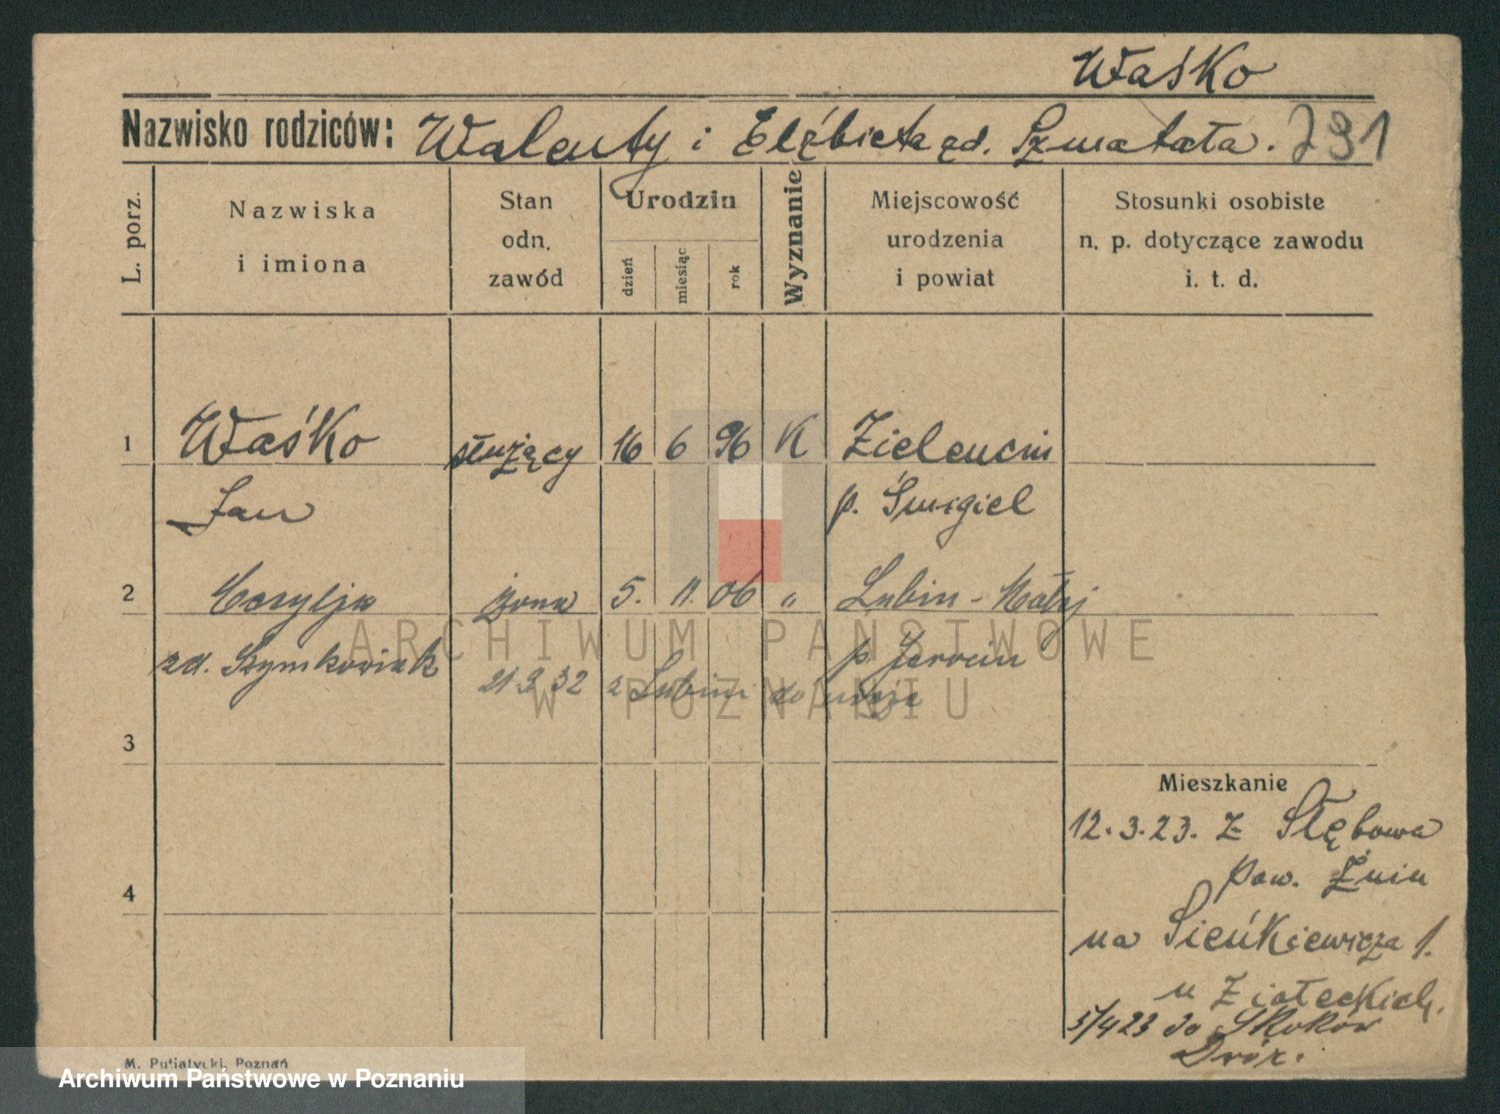 Waśko
Nazwisko rodziców: Walenty i Elżbieta zd. Szmatała. 791
L. porz.
Nazwiska
i imiona
Stan
odn.
zawód
Urodzin
dzień
miesiąc
rok
Wyznanie
Miejscowość
urodzenia
i powiat
Stosunki osobiste
n. p. dotyczące zawodu
i. t. d.
1 Waśko służący 16 6 96 K Zielencin
Jan p. Śmigiel
2 Marylja żona 5. 11. 06 " Lubin - Małej
zd. Szymkowiak p. Jarocin
21 9 32 z Lubini do
3
Mieszkanie
12.3.23. z Słębowa
pow. Żnin
4
na Sieńkiewicza 1.
u Ziółeckich.
5/4 23 do Skoków
M. Putiatycki, Poznań
ARCHIWUM PAŃSTWOWE
W POZNANIU
Archiwum Państwowe w Poznaniu